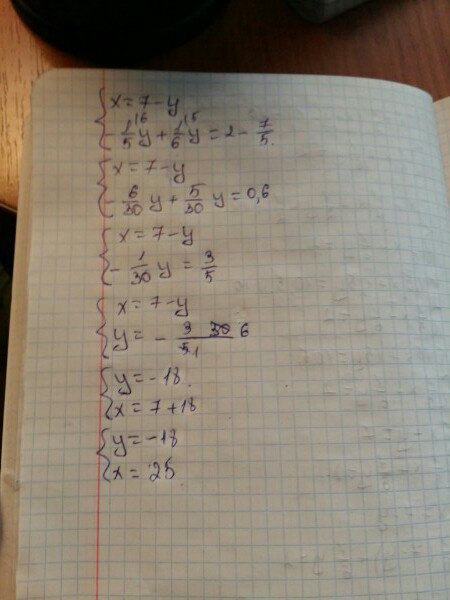 x = 7 - y
- 1/5 \6 y + 1/6 \5 y = 2 - 7/5.
x = 7 - y
- 6/30 y + 5/30 y = 0,6
x = 7 - y
- 1/30 y = 3/5
x = 7 - y
y = - 3 30 6 / 5 1
y = -18
x = 7 + 18
y = -18
x = 25